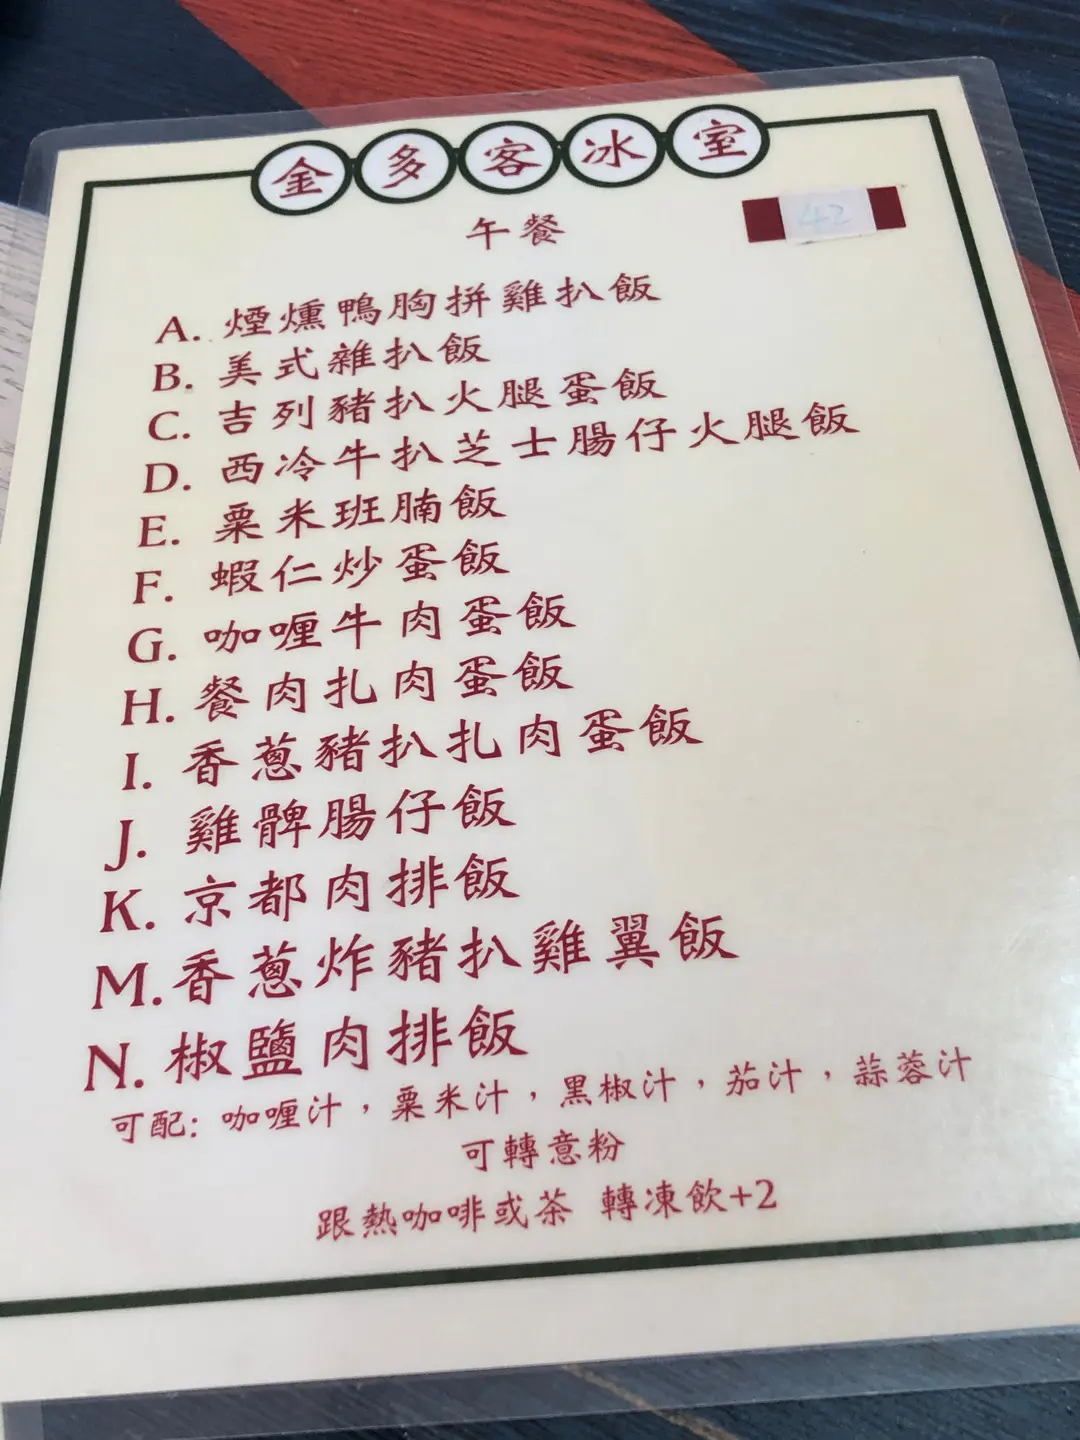 金多客冰室
午餐
42
A. 煙燻鴨胸拼雞扒飯
B. 美式雜扒飯
C. 吉列豬扒火腿蛋飯
D. 西冷牛扒芝士腸仔火腿飯
E. 粟米班腩飯
F. 蝦仁炒蛋飯
G. 咖喱牛肉蛋飯
H. 餐肉扎肉蛋飯
I. 香蔥豬扒扎肉蛋飯
J. 雞髀腸仔飯
K. 京都肉排飯
M. 香蔥炸豬扒雞翼飯
N. 椒鹽肉排飯
可配: 咖喱汁，粟米汁，黑椒汁，茄汁，蒜蓉汁
可轉意粉
跟熱咖啡或茶 轉凍飲+2